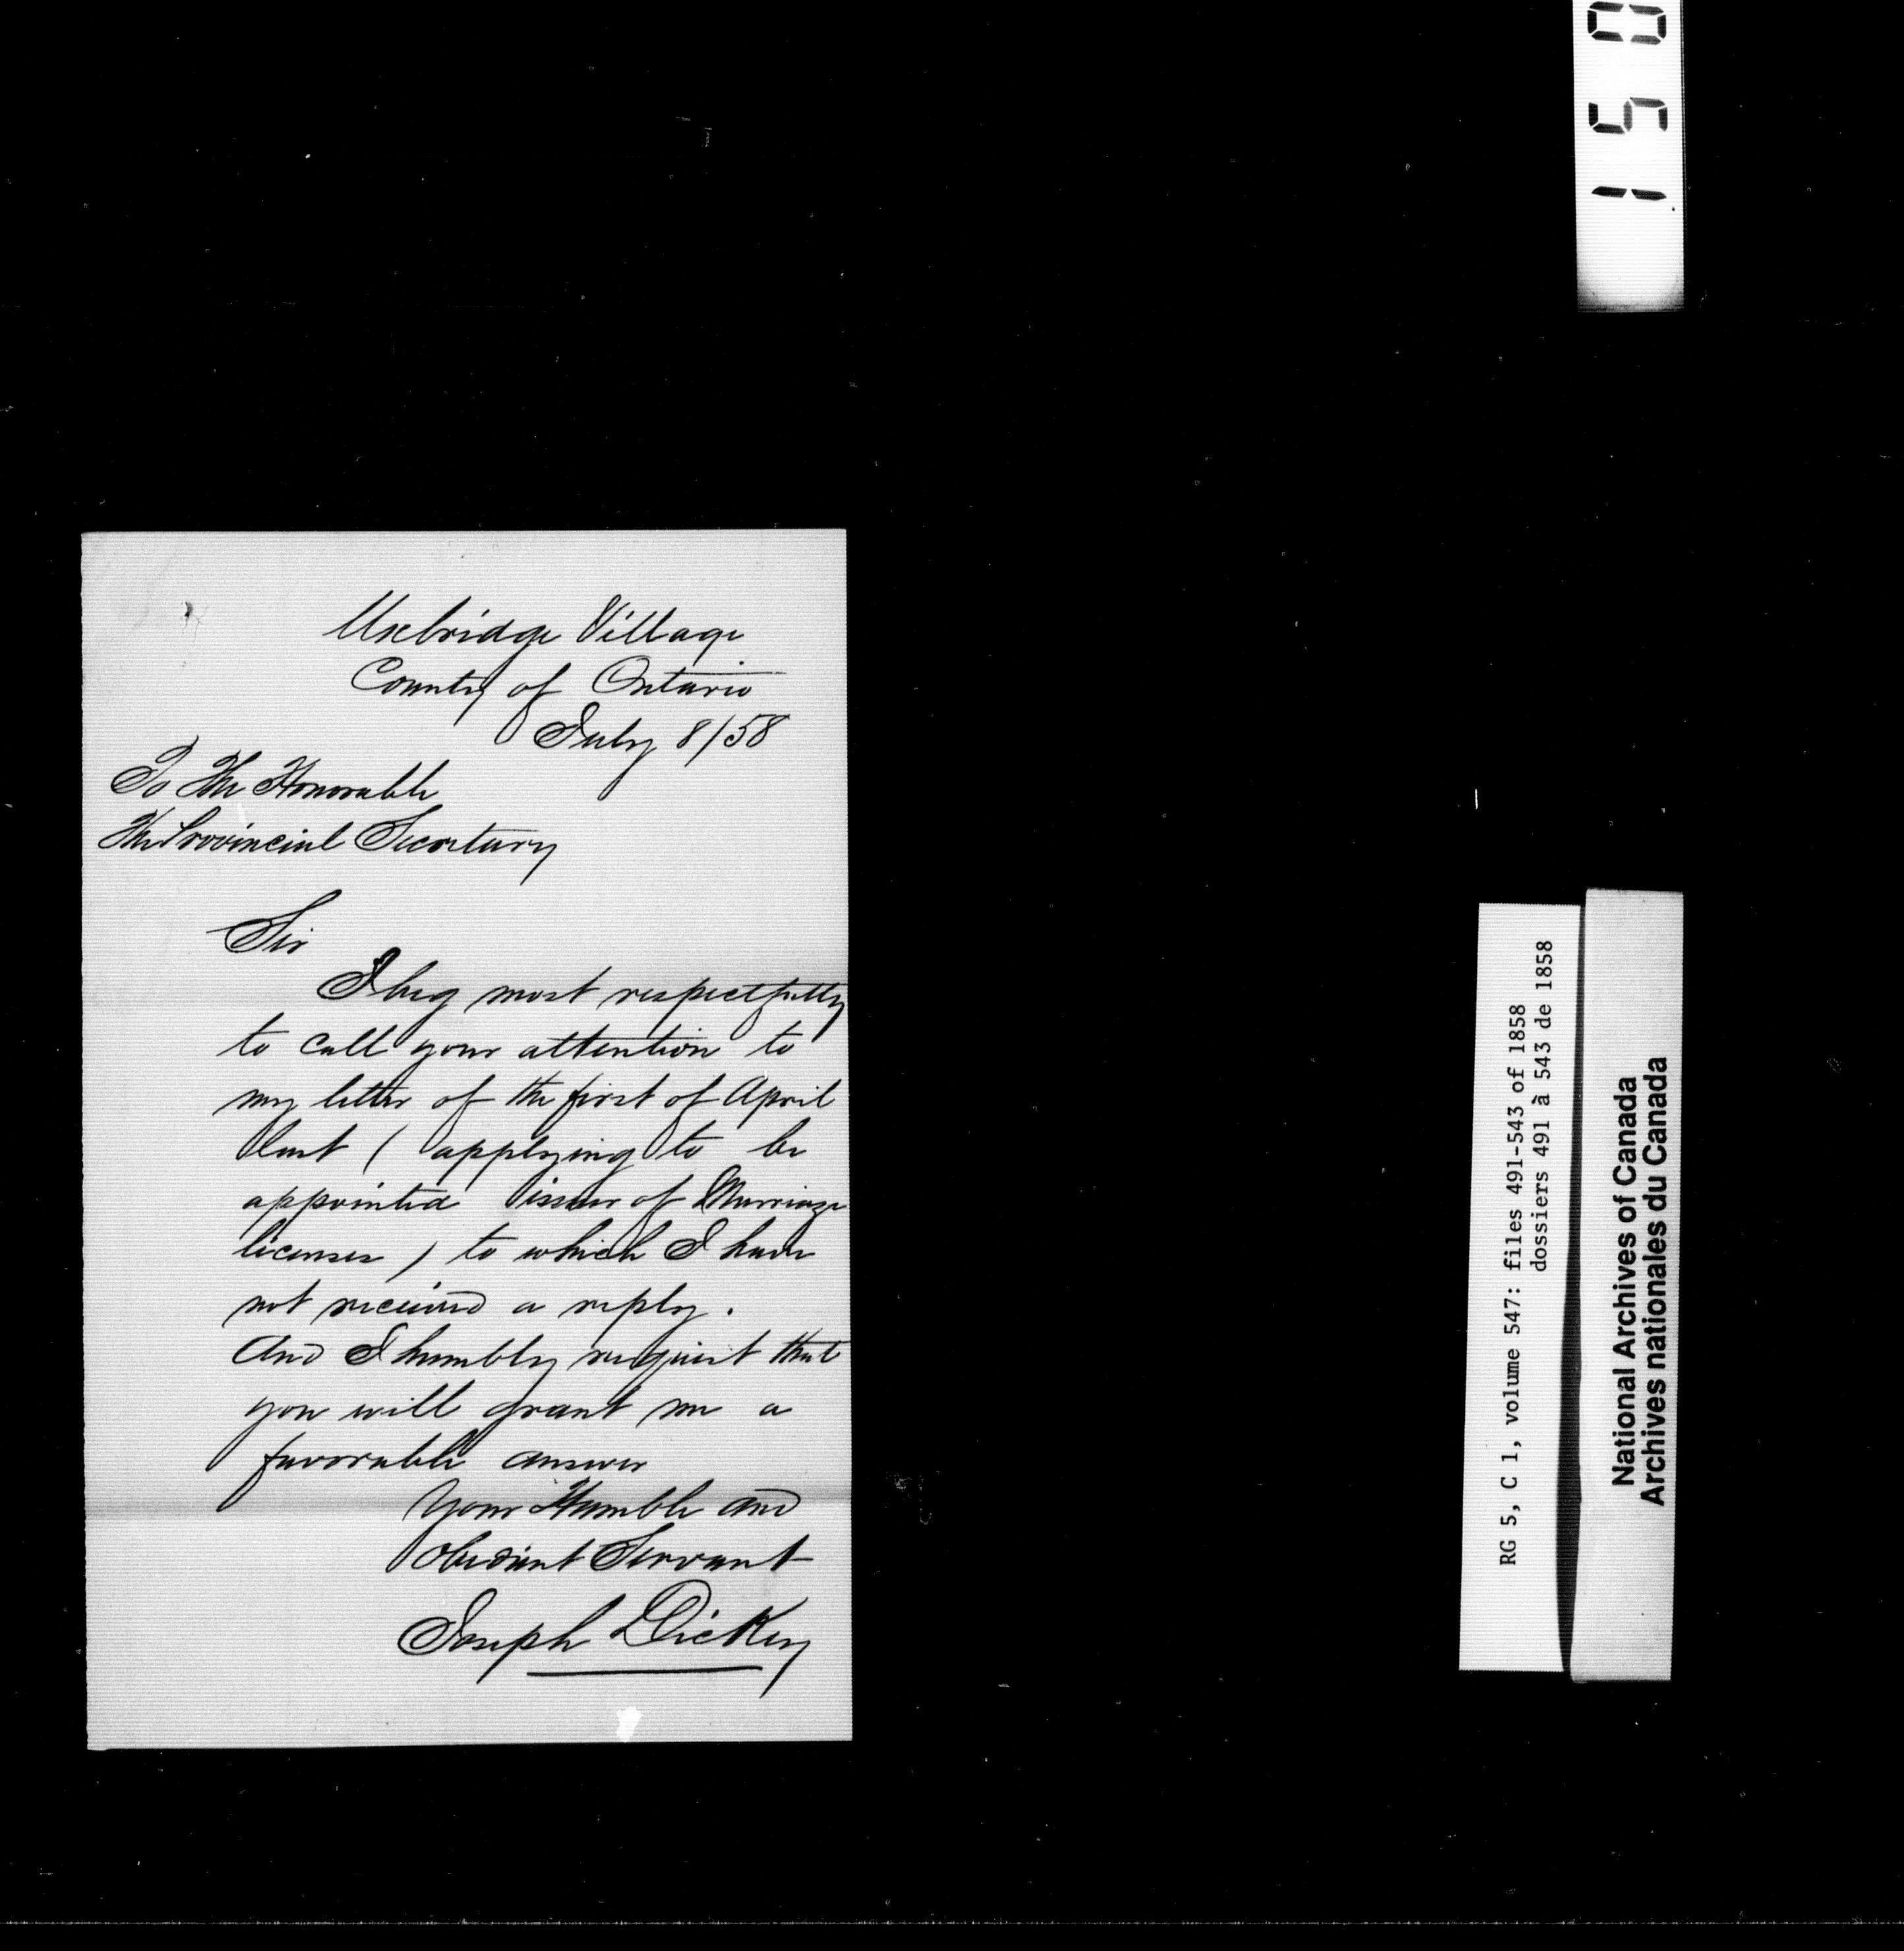 Uxbridge Village
County of Ontario
July 8/58
To The Honorable
The Provincial Secretary
Sir
I beg most respectfully
to call your attention to
my letter of the first of April
last ( applying to be
appointed issuer of Marriage
licenses ) to which I have
not received a reply.
And I humbly request that
you will grant me a
favorable answer
Your Humble and
obedient Servant
Joseph Dickey
150
RG 5, C 1, volume 547: files 491-543 of 1858
dossiers 491 à 543 de 1858
National Archives of Canada
Archives nationales du Canada